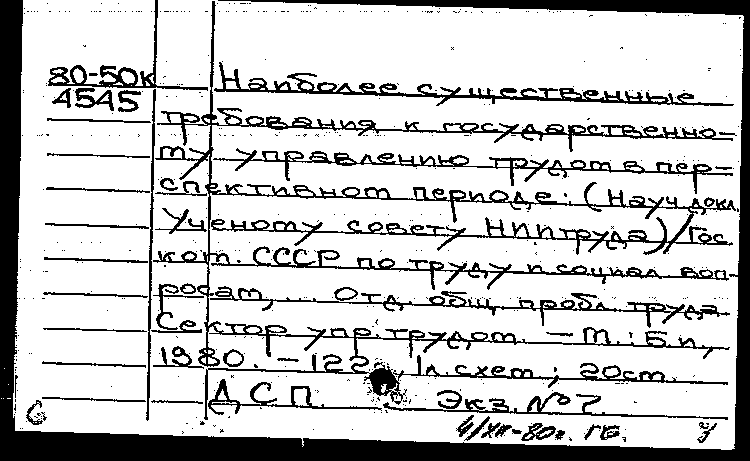 80-50к
4545
Наиболее существенные
требования к государственно-
му управлению трудом в пер-
спективном периоде: (Науч. докл.
Ученому совету НИИтруда)/Гос.
ком. СССР по труду и социал. воп-
росам, ... Отд. общ. пробл. труда
Сектор упр. трудом. – М.: Б.и.,
1980. – 122 , 1л. схем; 20см.
ДСП. Экз. №7.
4/XII-80г. ГБ.